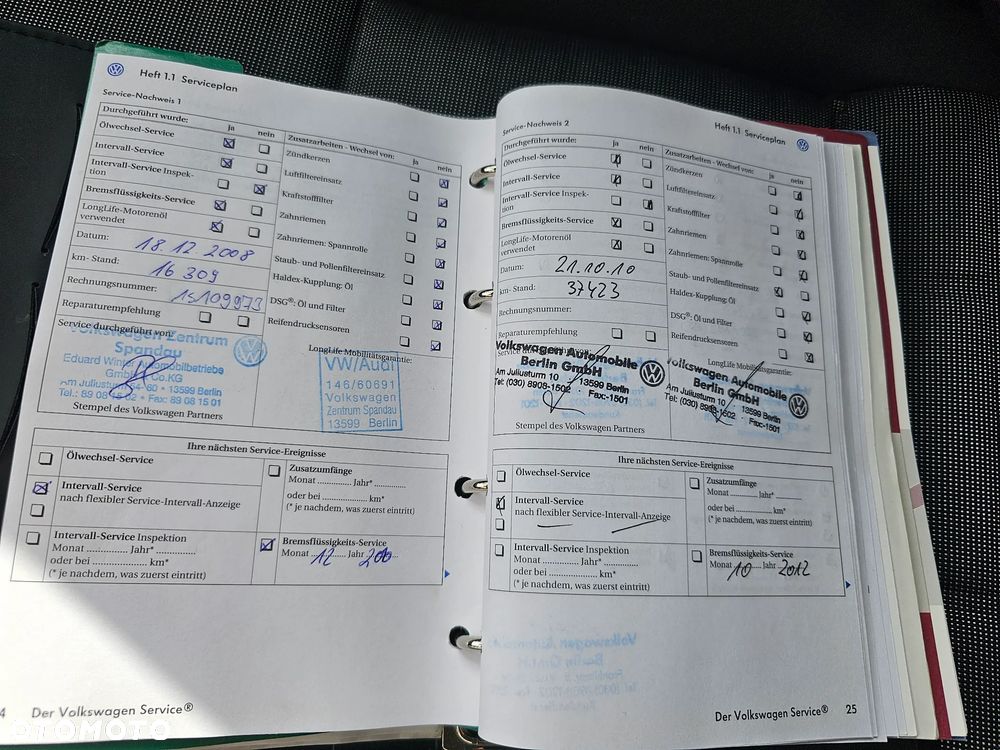 Heft 1.1 Serviceplan
Service-Nachweis 1
Durchgeführt wurde: ja nein
Ölwechsel-Service
Intervall-Service
Intervall-Service Inspek-
tion
Bremsflüssigkeits-Service
LongLife-Motorenöl
verwendet
Datum: 18.12.2008
km-Stand: 16 309
Rechnungsnummer: 1s109973
Reparaturempfehlung
Service durchgeführt von:
Volkswagen Zentrum
Spandau
Eduard Winter Automobilbetriebe
GmbH & Co.KG
Am Juliusturm 54-60 • 13599 Berlin
Tel.: 89 08 15 02 • Fax: 89 08 15 01
Stempel des Volkswagen Partners
Zusatzarbeiten - Wechsel von: ja nein
Zündkerzen
Luftfiltereinsatz
Kraftstofffilter
Zahnriemen
Zahnriemen: Spannrolle
Staub- und Pollenfiltereinsatz
Haldex-Kupplung: Öl
DSG®: Öl und Filter
Reifendrucksensoren
LongLife Mobilitätsgarantie:
VW/Audi
146/60691
Volkswagen
Zentrum Spandau
13599 Berlin
Ihre nächsten Service-Ereignisse
Ölwechsel-Service
Intervall-Service
nach flexibler Service-Intervall-Anzeige
Intervall-Service Inspektion
Monat .............. Jahr* ..............
oder bei .................... km*
(* je nachdem, was zuerst eintritt)
Zusatzumfänge
Monat .............. Jahr* ..............
oder bei .................... km*
(* je nachdem, was zuerst eintritt)
Bremsflüssigkeits-Service
Monat 12 Jahr
Der Volkswagen Service®
Heft 1.1 Serviceplan
Service-Nachweis 2
Durchgeführt wurde: ja nein
Ölwechsel-Service
Intervall-Service
Intervall-Service Inspek-
tion
Bremsflüssigkeits-Service
LongLife-Motorenöl
verwendet
Datum: 21.10.10
km- Stand: 37423
Rechnungsnummer:
Reparaturempfehlung
Volkswagen Automobile
Berlin GmbH
Am Juliusturm 10 13599 Berlin
Tel: (030) 8908-1502 Fax:-1501
Stempel des Volkswagen Partners
Zusatzarbeiten - Wechsel von: ja nein
Zündkerzen
Luftfiltereinsatz
Kraftstofffilter
Zahnriemen
Zahnriemen: Spannrolle
Staub- und Pollenfiltereinsatz
Haldex-Kupplung: Öl
DSG®: Öl und Filter
Reifendrucksensoren
LongLife Mobilitätsgarantie:
Volkswagen Automobile
Berlin GmbH
Am Juliusturm 10 13599 Berlin
Tel: (030) 8908-1502 Fax:-1501
Ihre nächsten Service-Ereignisse
Ölwechsel-Service
Intervall-Service
nach flexibler Service-Intervall-Anzeige
Intervall-Service Inspektion
Monat .............. Jahr* ..............
oder bei .................... km*
(* je nachdem, was zuerst eintritt)
Zusatzumfänge
Monat .............. Jahr* ..............
oder bei .................... km*
(* je nachdem, was zuerst eintritt)
Bremsflüssigkeits-Service
Monat 10 Jahr 2012
Der Volkswagen Service® 25
OTOMOTO